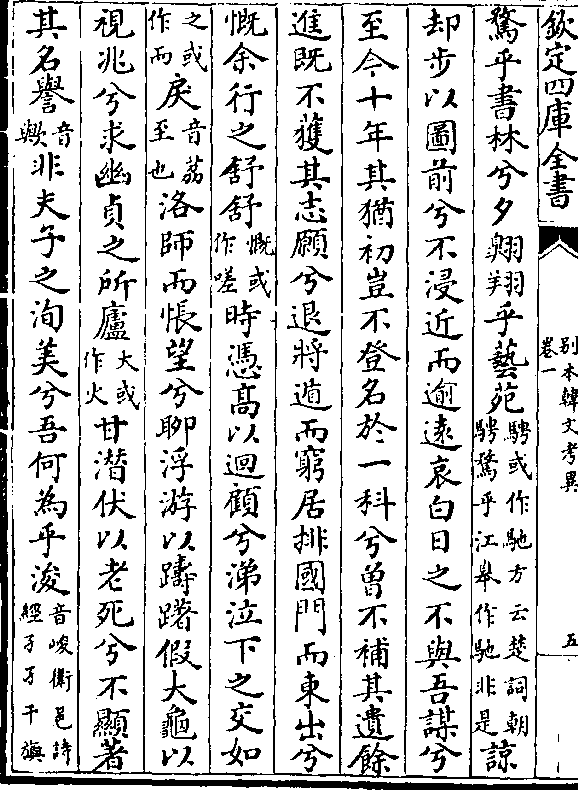 欽定四庫全書
別本韓文考異
卷一
五
騖乎書林兮夕翱翔乎藝苑騁或作馳方云楚詞朝騁騖乎江皋作馳非是諒
却步以圖前兮不浸近而逾遠哀白日之不與吾謀兮
至今十年其猶初豈不登名於一科兮曾不補其遺餘
進既不獲其志願兮退將遁而窮居排國門而東出兮
慨余行之舒舒慨或作嗟時憑高以迴顧兮涕泣下之交如
之或作而戾音荔至也洛師而悵望兮聊浮游以躊躇假大龜以
視兆兮求幽貞之所廬大或作火甘潜伏以老死兮不顯著
其名譽音歟非夫子之洵美兮吾何為乎浚音峻衛邑詩經孑孑干旟